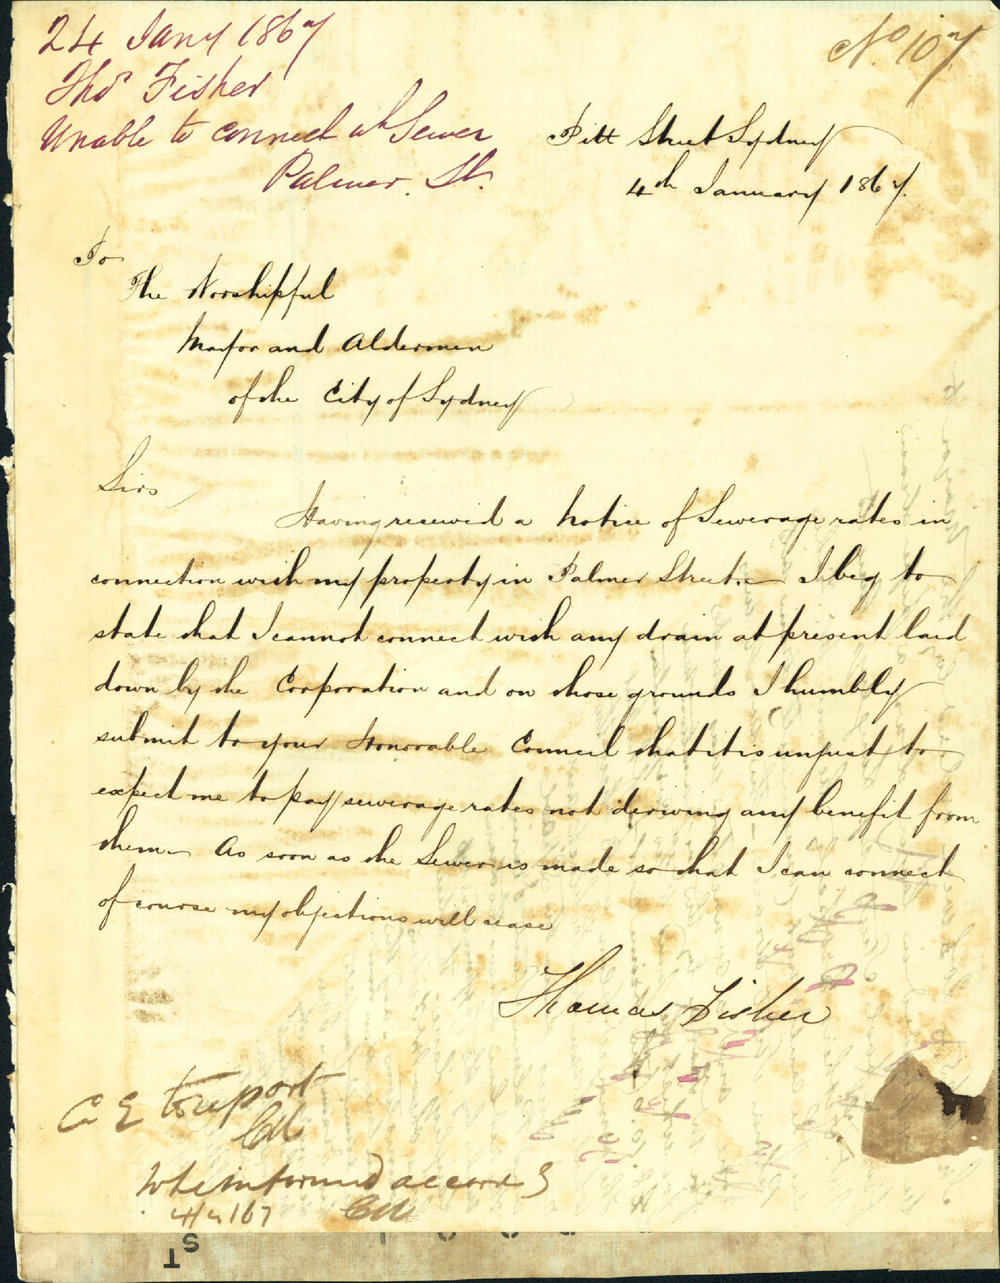 24 Jany 1867
Thos Fisher
Unable to connect wh Sewer
Palmer. St.
No. 107
Pitt Street Sydney
4th January 1867.
To
The Worshipful
Mayor and Aldermen
of the City of Sydney
Sirs
Having received a notice of Sewerage rates in
connection with my property in Palmer Street. — I beg to
state that I cannot connect with any drain at present laid
down by the Corporation and on those grounds I humbly
submit to your Honorable Council that it is unjust to
expect me to pay sewerage rates not deriving any benefit from
them — As soon as the Sewer is made so that I can connect
of course my objections will cease
Thomas Fisher
C E to report
To be informed accord
167
ST